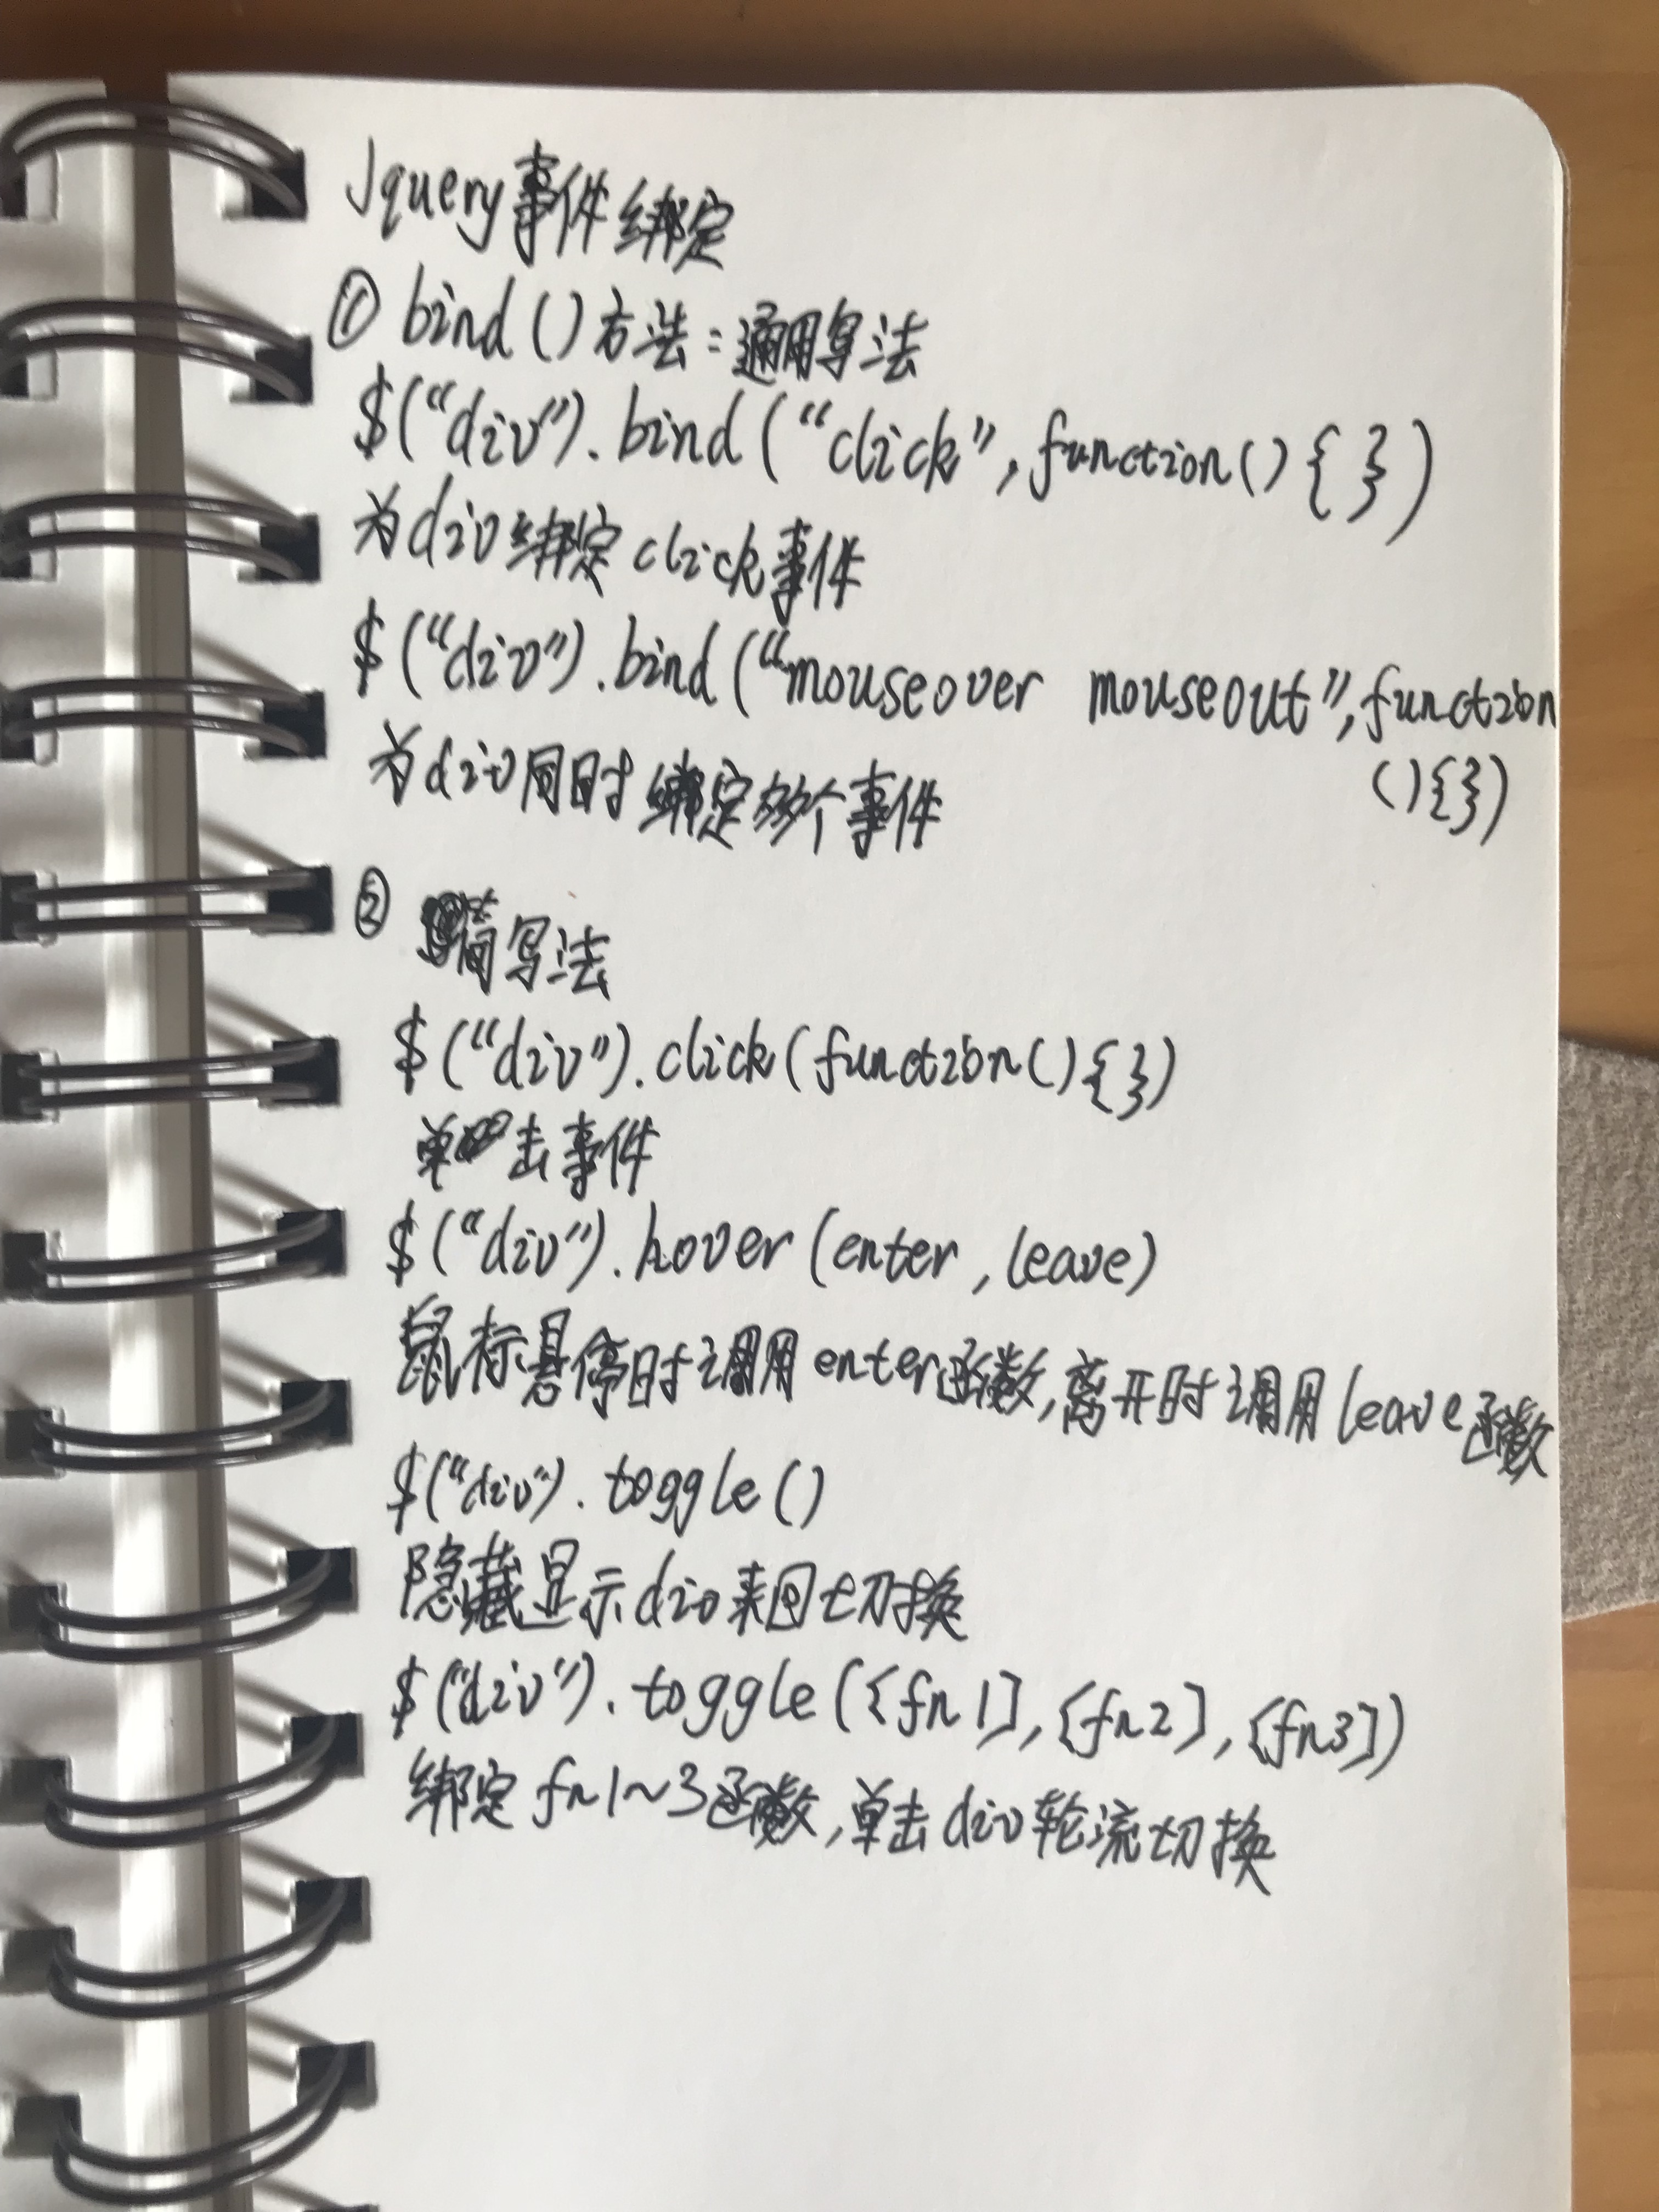 Jquery事件绑定
① bind()方法:通用写法
$(“div”).bind(“click”,function(){ })
为div绑定click事件
$(“div”).bind(“mouseover mouseout”,function
(){})
为div同时绑定多个事件
② 简写法
$(“div”).click(function(){})
单击事件
$(“div”).hover(enter,leave)
鼠标悬停时调用enter函数,离开时调用leave函数
$(“div”).toggle()
隐藏显示div来回切换
$(“div”).toggle({fn1],{fn2],{fn3])
绑定fn1~3函数,单击div轮流切换